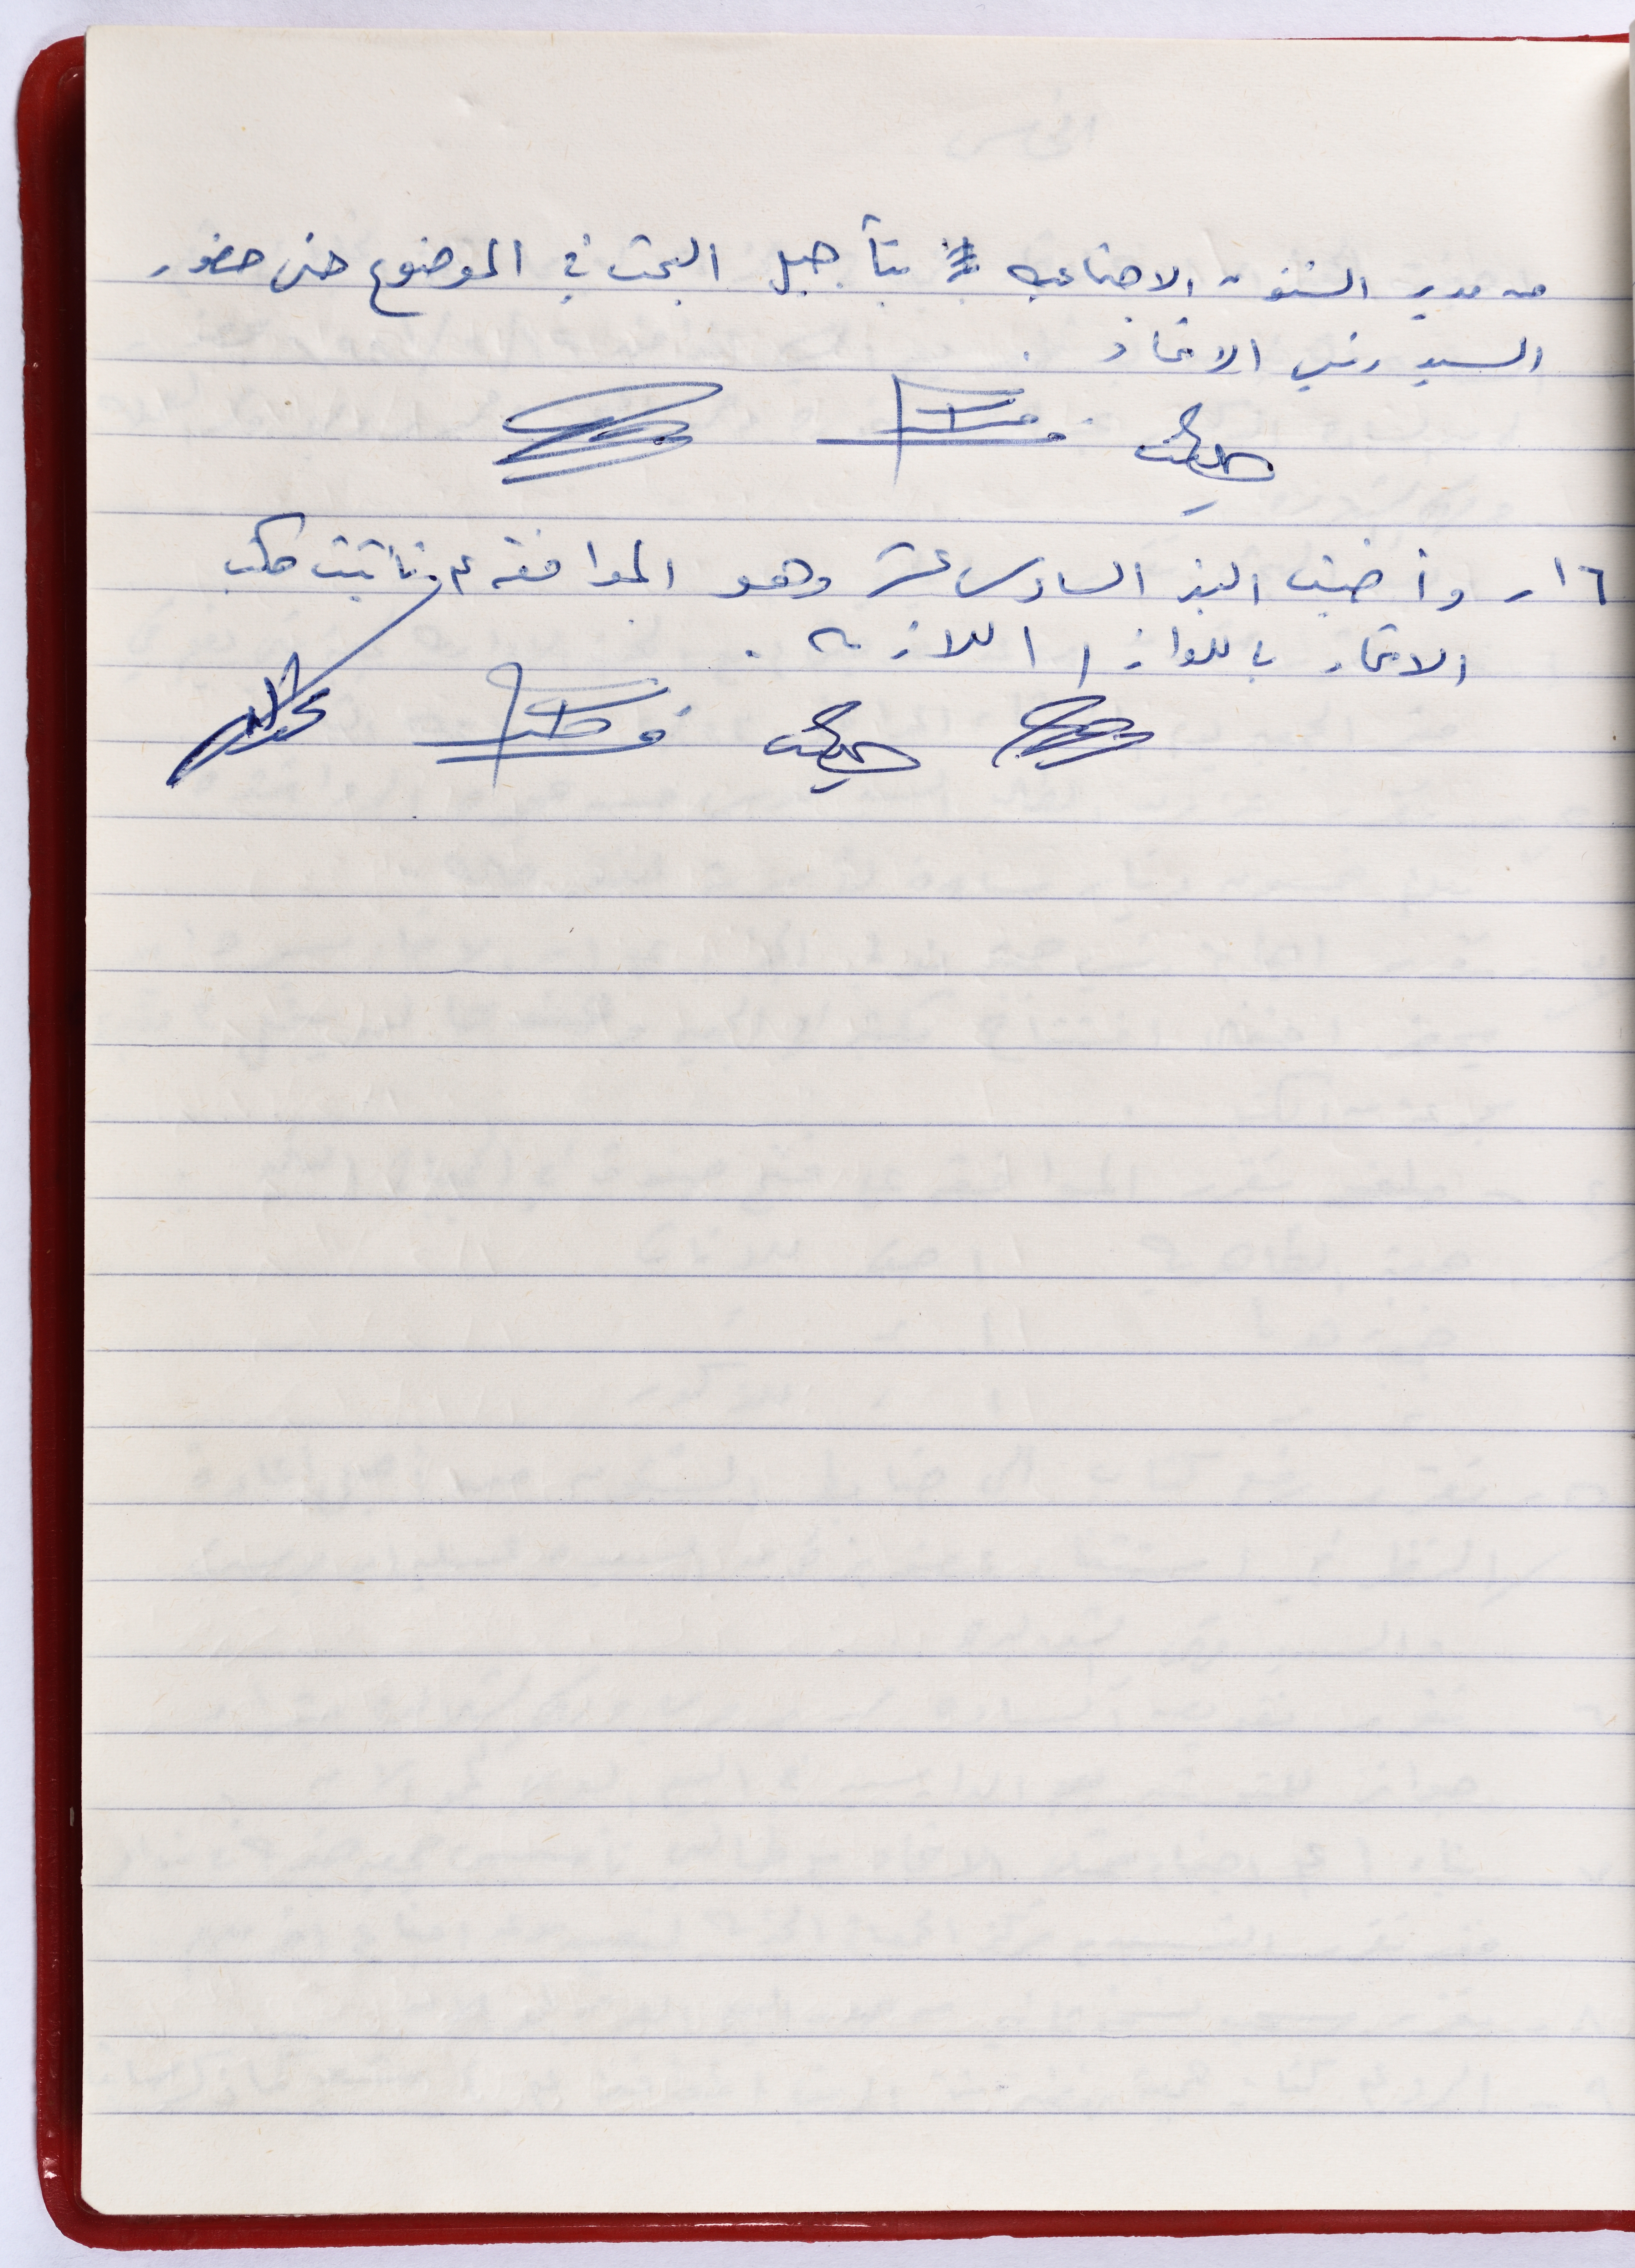 من مدير الشئون الاجتماعيه بتأجيل البحث في الموضوع حتى حضور
السيد رئيس الاتحاد .
١٦ـ وأضيف البند السادس عشر وهو الموافقه على تأثيث مكتب
الاتحاد باللوازم اللازمه .